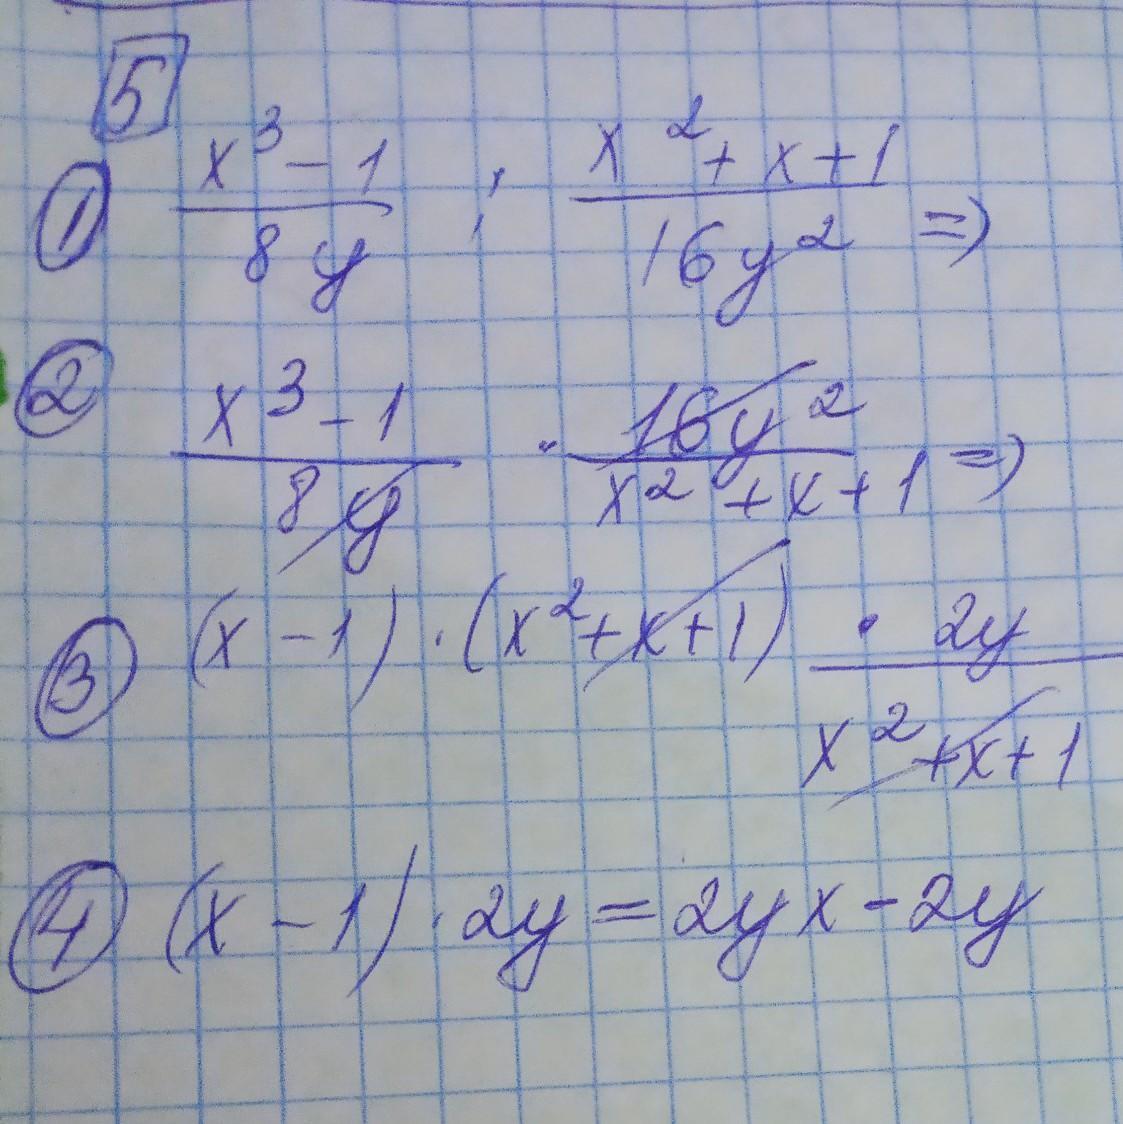 5
① x³ - 1 / 8y : x² + x + 1 / 16y² =>
② x³ - 1 / 8y · 16y² / x² + x + 1 =>
③ (x - 1) · (x² + x + 1) · 2y / x² + x + 1
④ (x - 1) · 2y = 2yx - 2y